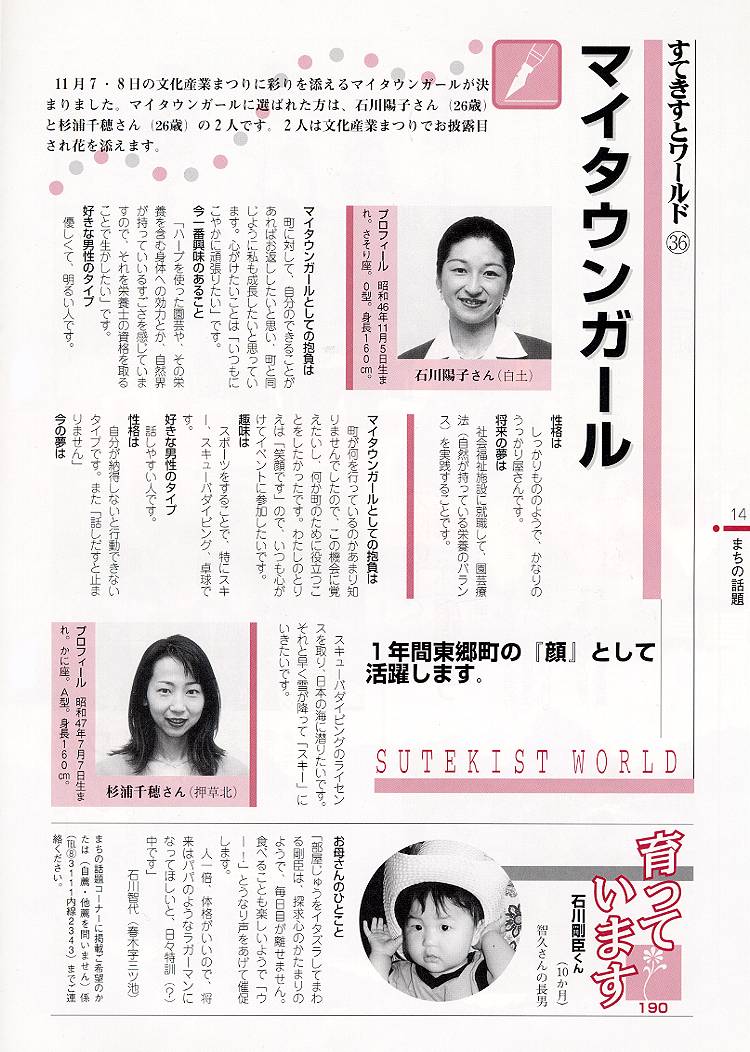 すてきすとワールド㊱
マイタウンガール
11月7・8日の文化産業まつりに彩りを添えるマイタウンガールが決
まりました。マイタウンガールに選ばれた方は、石川陽子さん（26歳）
と杉浦千穂さん（26歳）の2人です。2人は文化産業まつりでお披露目
され花を添えます。
石川陽子さん（白土）
プロフィール　昭和46年11月5日生ま
れ。さそり座。O型。身長160cm。
マイタウンガールとしての抱負は
町に対して、自分のできることが
あればお返ししたいと思い、町と同
じように私も成長したいと思ってい
ます。心がけたいことは「いつもに
こやかに頑張りたい」です。
今一番興味のあること
「ハーブを使った園芸や、その栄
養を含む身体への効力とか、自然界
が持っているすごさを感じていま
すので、それを栄養士の資格を取る
ことで生かしたい」です。
好きな男性のタイプ
優しくて、明るい人です。
性格は
しっかりもののようで、かなりの
うっかり屋さんです。
将来の夢は
社会福祉施設に就職して、園芸療
法（自然が持っている栄養のバラン
ス）を実践することです。
マイタウンガールとしての抱負は
町が何を行っているのかあまり知
りませんでしたので、この機会に覚
えたいし、何か町のために役立つこ
とをしたかったです。わたしのとり
えは「笑顔です」ので、いつも心が
けてイベントに参加したいです。
趣味は
スポーツをすることで、特にスキ
ー、スキューバダイビング、卓球で
す。
好きな男性のタイプ
話しやすい人です。
性格は
自分が納得しないと行動できない
タイプです。また「話しだすと止ま
りません」
今の夢は
スキューバダイビングのライセン
スを取り、日本の海に潜りたいです。
それと早く雪が降って「スキー」に
いきたいです。
杉浦千穂さん（押草北）
プロフィール　昭和47年7月7日生ま
れ。かに座。A型。身長160cm。
1年間東郷町の『顔』として
活躍します。
SUTEKIST WORLD
14
まちの話題
育って
います
190
石川剛臣くん
（10か月）
智久さんの長男
お母さんのひとこと
「部屋じゅうをイタズラしてまわ
る剛臣は、探求心のかたまりの
ようで、毎日目が離せません。
食べることも楽しいようで「ウ
ー！」とうなり声をあげて催促
します。
人一倍、体格がいいので、将
来はパパのようなラガーマンに
なってほしいと、日々特訓（？）
中です」
石川智代（春木字三ツ池）
まちの話題コーナーに掲載ご希望のか
たは（自薦・他薦を問いません）係
（℡⑧3111内線2343）までご連
絡ください。